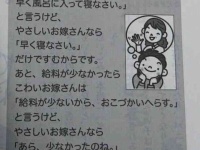 早く風呂に入って寝なさい。」
と言うけど、
やさしいお嫁さんなら
「早く寝なさい。」
だけですむからです。
あと、給料が少なかったら
こわいお嫁さんは
「給料が少ないから、おこづかいへらす。」
と言うけど、
やさしいお嫁さんなら
「あら、少なかったのね。」